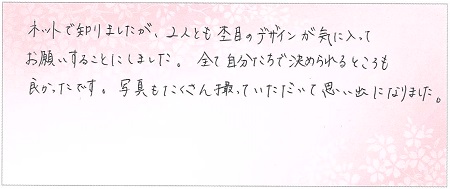 ネットで知りましたが、2人とも杢目のデザインが気に入って
お願いすることにしました。全て自分たちで決められるところも
良かったです。写真もたくさん撮っていただいて思い出になりました。